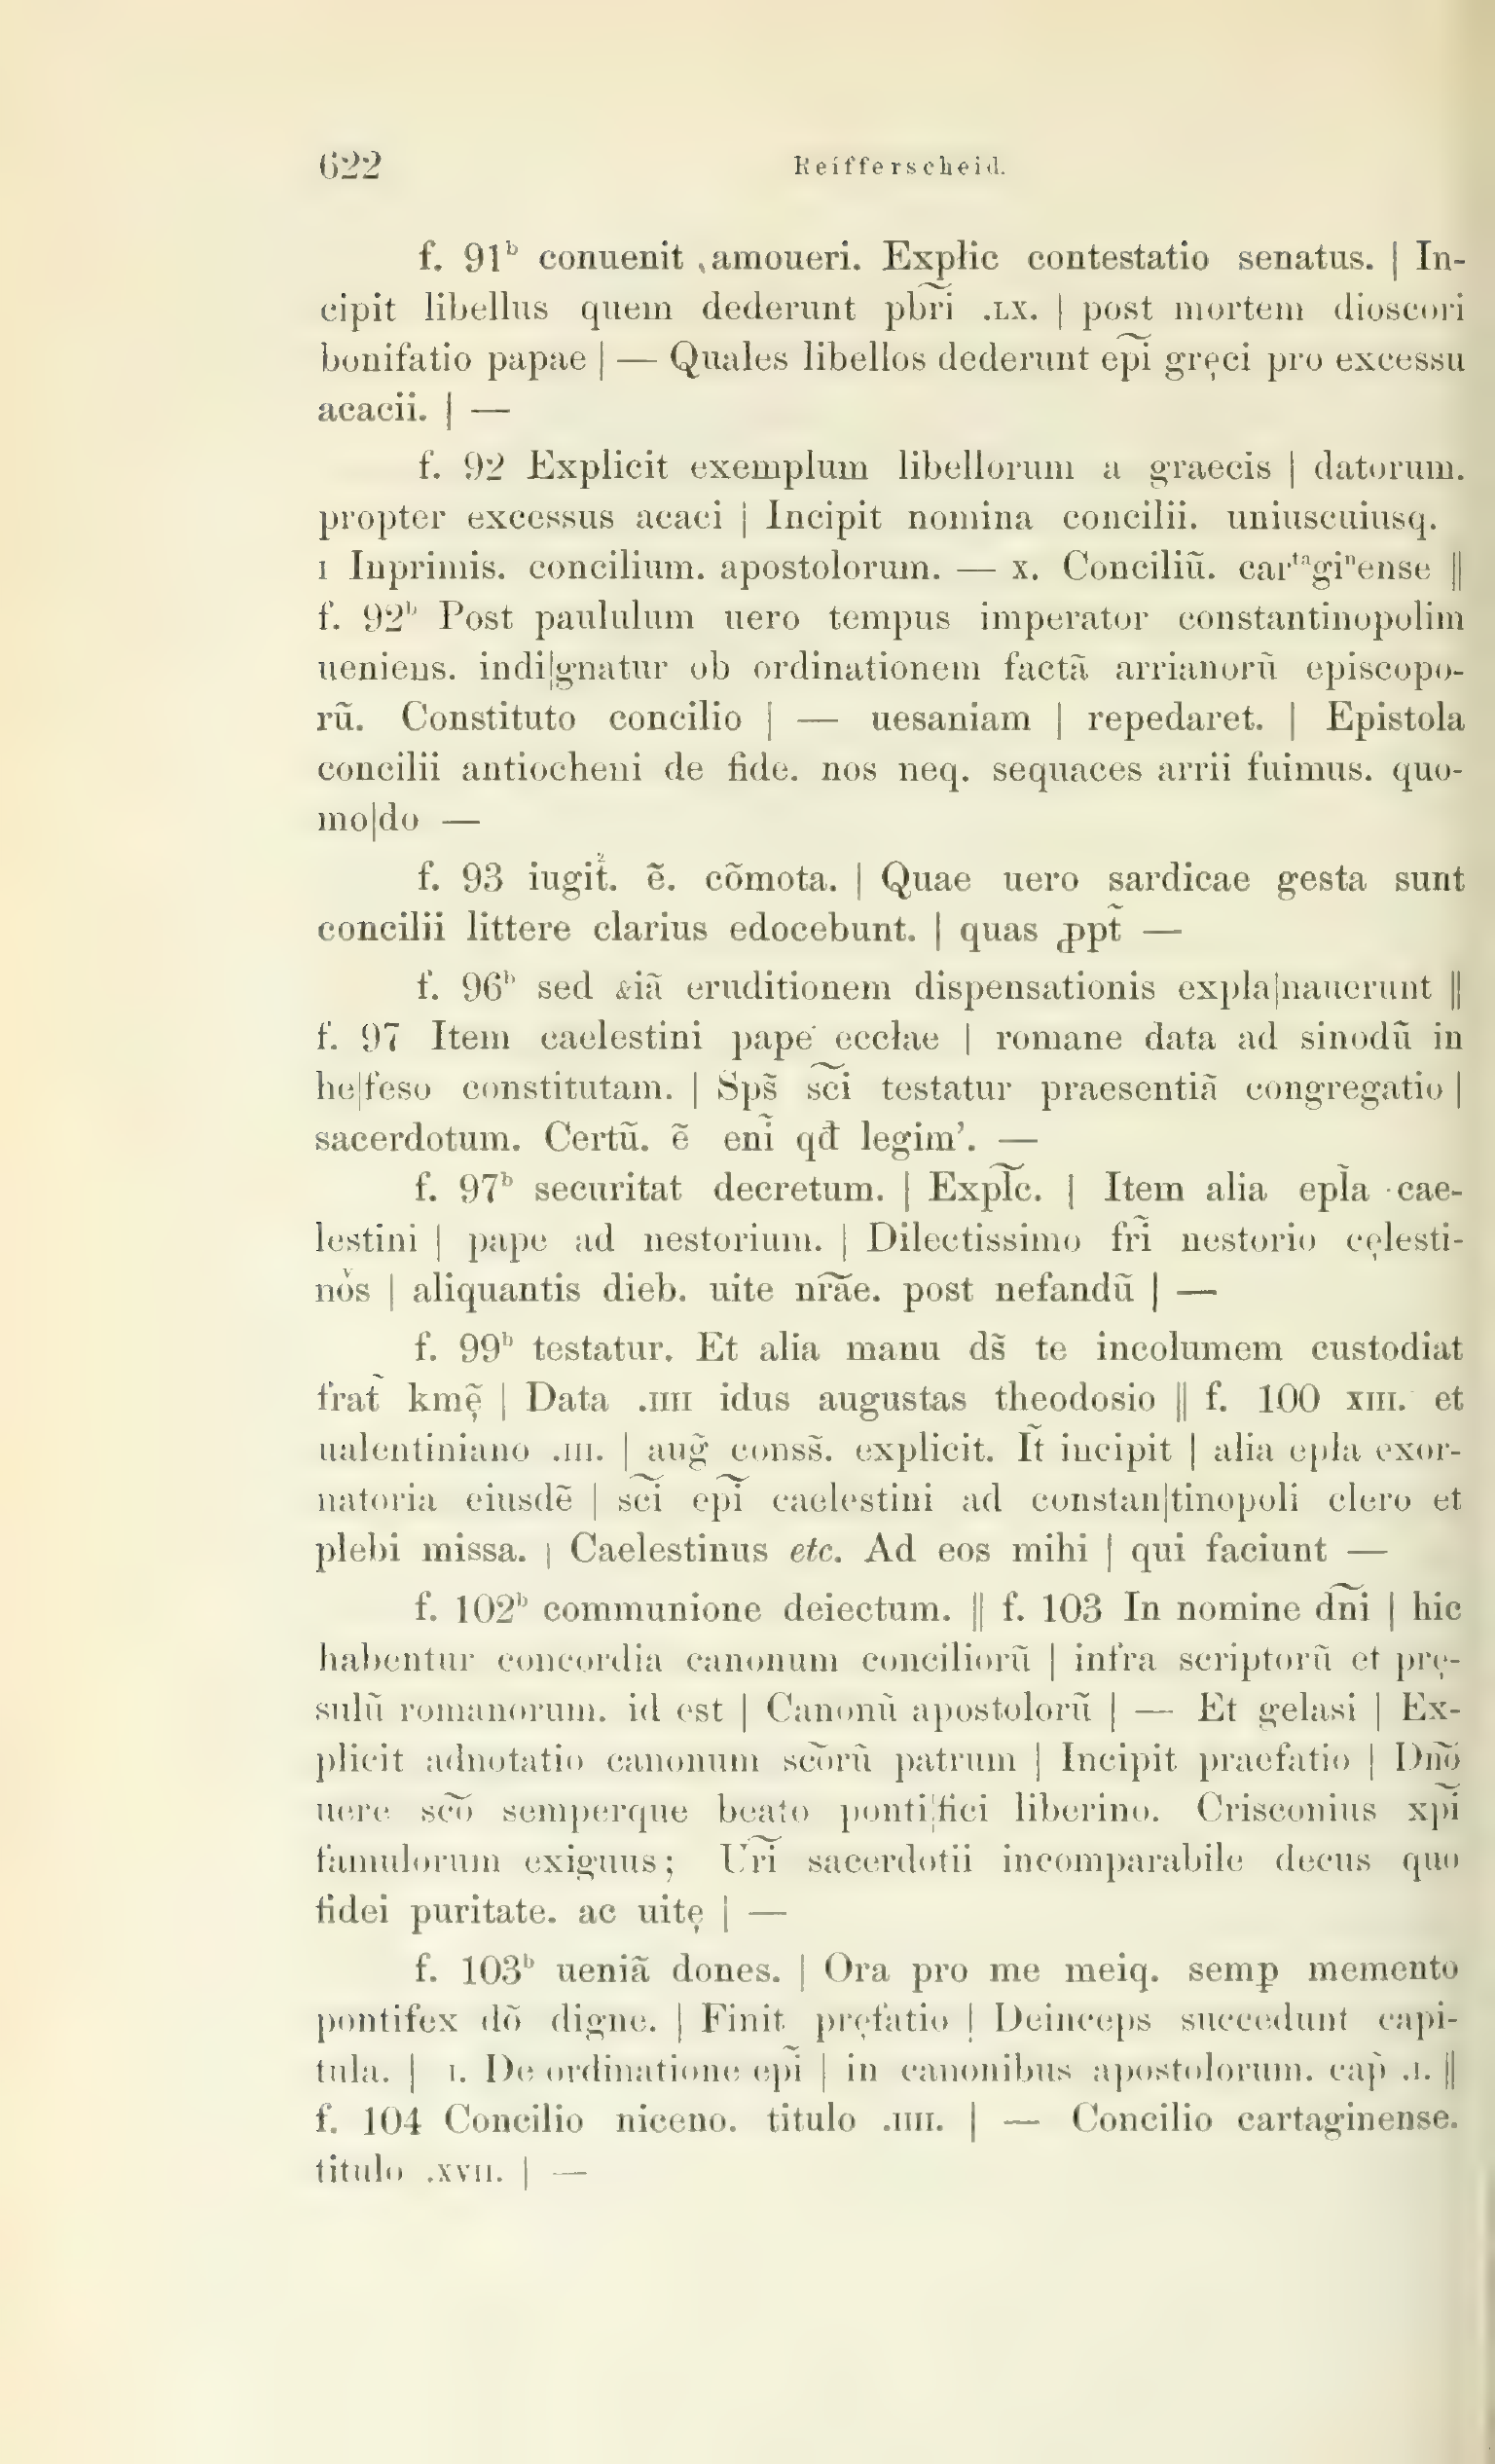 622 Reifferscheid.
f. 91ᵇ conuenit amoueri. Explic contestatio senatus. | In-
cipit libellus quem dederunt pbr͠i .LX. | post mortem dioscori
bonifatio papae | — Quales libellos dederunt ep͠i gręci pro excessu
acacii. | —
f. 92 Explicit exemplum libellorum a graecis | datorum.
propter excessus acaci | Incipit nomina concilii. uniuscuiusq.
I Inprimis. concilium. apostolorum. — X. Conciliũ. carᵗᵃgiⁿense ‖
f. 92ᵇ Post paululum uero tempus imperator constantinopolim
ueniens. indi|gnatur ob ordinationem factã arrianorũ episcopo-
rũ. Constituto concilio | — uesaniam | repedaret. | Epistola
concilii antiocheni de fide. nos neq. sequaces arrii fuimus. quo-
mo|do —
f. 93 iugit᷒. ẽ. cõmota. | Quae uero sardicae gesta sunt
concilii littere clarius edocebunt. | quas ꝓpt̃ —
f. 96ᵇ sed &iã eruditionem dispensationis expla|nauerunt ‖
f. 97 Item caelestini pape ecclae | romane data ad sinodũ in
he|feso constitutam. | Sps̃ sc͠i testatur praesentiã congregatio |
sacerdotum. Certũ. ẽ enĩ qđ legim’. —
f. 97ᵇ securitat decretum. | Expl͠c. | Item alia epl̃a cae-
lestini | pape ad nestorium. | Dilectissimo fr̃i nestorio cęlesti-
nos | aliquantis dieb. uite nr͠ae. post nefandũ | —
f. 99ᵇ testatur. Et alia manu ds̃ te incolumem custodiat
frat̃ kmę̃ | Data .IIII idus augustas theodosio ‖ f. 100 XIII. et
ualentiniano .III. | aug̃ conss̃. explicit. It̃ incipit | alia epla exor-
natoria eiusdẽ | sc͠i ep͠i caelestini ad constan|tinopoli clero et
plebi missa. | Caelestinus etc. Ad eos mihi | qui faciunt —
f. 102ᵇ communione deiectum. ‖ f. 103 In nomine dn͠i | hic
habentur concordia canonum conciliorũ | infra scriptorũ et prę-
sulũ romanorum. id est | Canonũ apostolorũ | — Et gelasi | Ex-
plicit adnotatio canonum sc͠orũ patrum | Incipit praefatio | Dn͠o
uere sc͠o semperque beato ponti|fici liberino. Crisconius xp͠i
famulorum exiguus; Ur͠i sacerdotii incomparabile decus quo
fidei puritate. ac uitę | —
f. 103ᵇ ueniã dones. | Ora pro me meiq. semꝑ memento
pontifex dõ digne. | Finit pręfatio | Deinceps succedunt capi-
tula. | I. De ordinatione ep͠i | in canonibus apostolorum. cap̃ .I. ‖
f. 104 Concilio niceno. titulo .IIII. | — Concilio cartaginense.
titulo .XVII. | —